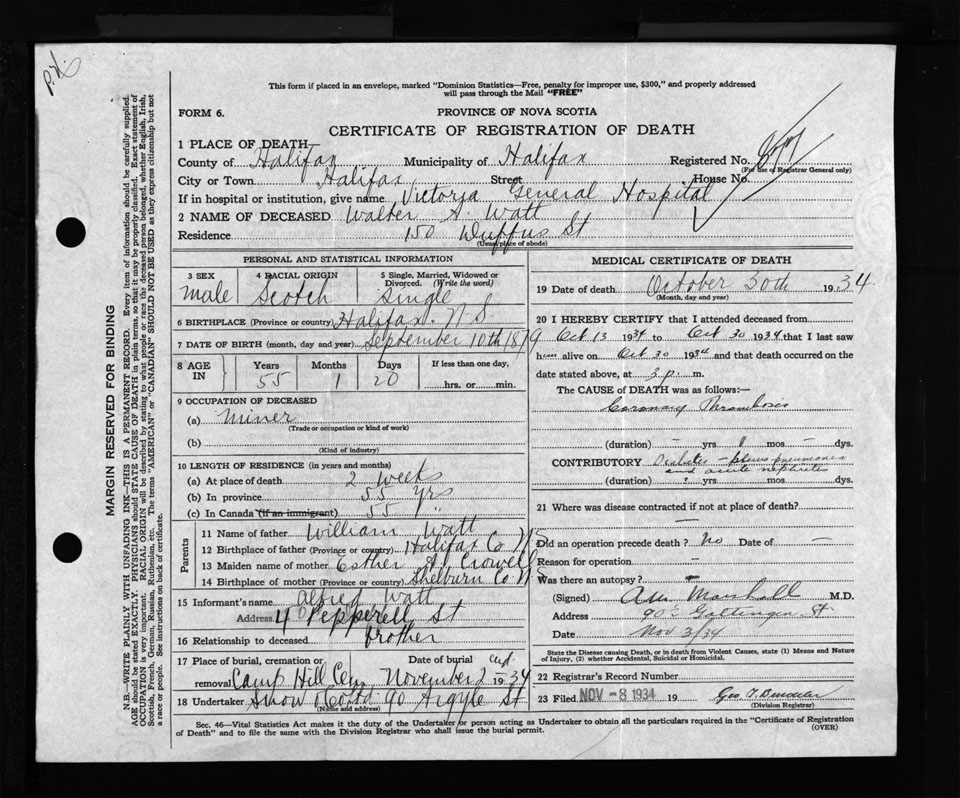 P.X.
This form if placed in an envelope, marked "Dominion Statistics—Free, penalty for improper use, $300," and properly addressed
will pass through the Mail "FREE"
FORM 6.
PROVINCE OF NOVA SCOTIA
CERTIFICATE OF REGISTRATION OF DEATH
1 PLACE OF DEATH
County of Halifax Municipality of Halifax Registered No.
(For use of Registrar General only)
City or Town Halifax Street House No.
If in hospital or institution, give name Victoria General Hospital
2 NAME OF DECEASED Walter A. Watt
Residence 150 Duffus St
(Usual place of abode)
MARGIN RESERVED FOR BINDING
N.B.—WRITE PLAINLY WITH UNFADING INK—THIS IS A PERMANENT RECORD. Every item of information should be carefully supplied.
AGE should be stated EXACTLY. PHYSICIANS should STATE CAUSE OF DEATH in plain terms, so that it may be properly classified. Exact statement of
OCCUPATION is very important. RACIAL ORIGIN will be described by stating to what people or race the deceased person belonged, whether English, Irish,
Scottish, French, German, Russian, Ruthenian, etc. The terms "AMERICAN" or "CANADIAN" SHOULD NOT BE USED as they express citizenship but not
a race or people. See instructions on back of certificate.
PERSONAL AND STATISTICAL INFORMATION
3 SEX 4 RACIAL ORIGIN 5 Single, Married, Widowed or
Divorced. (Write the word)
Male Scotch Single
6 BIRTHPLACE (Province or country) Halifax. N.S.
7 DATE OF BIRTH (month, day and year) September 10th 1879
8 AGE IN Years Months Days If less than one day,
55 1 20 hrs. or min.
9 OCCUPATION OF DECEASED
(a) Miner
(Trade or occupation or kind of work)
(b)
(Kind of industry)
10 LENGTH OF RESIDENCE (in years and months)
(a) At place of death 2 weeks
(b) In province 55 yrs
(c) In Canada (if an immigrant) 55 "
Parents
11 Name of father William Watt
12 Birthplace of father (Province or country) Halifax Co N.S
13 Maiden name of mother Esther A. Crowell
14 Birthplace of mother (Province or country) Shelburn Co N.S
15 Informant's name Alfred Watt
Address 4 Pepperell St
16 Relationship to deceased brother
17 Place of burial, cremation or Date of burial
removal Camp Hill Cem November 2nd 1934
18 Undertaker Snow & Co Ltd. 90 Argyle St
(Name and address)
MEDICAL CERTIFICATE OF DEATH
19 Date of death October 30th 1934
(Month, day and year)
20 I HEREBY CERTIFY that I attended deceased from
Oct 13 1934 to Oct 30 1934 that I last saw
h alive on Oct 30 1934 and that death occurred on the
date stated above, at 3 p. m.
The CAUSE of DEATH was as follows:—
Coronary Thrombosis
(duration) — yrs mos — dys.
CONTRIBUTORY Diabetes - pleuro pneumonia
and acute nephritis
(duration) ? yrs mos dys.
21 Where was disease contracted if not at place of death?
Did an operation precede death? No Date of —
Reason for operation —
Was there an autopsy? —
(Signed) A.M. Marshall M.D.
Address Gottingen St.
Date Nov 3/34
State the Disease causing Death, or in death from Violent Causes, state (1) Means and Nature
of Injury, (2) whether Accidental, Suicidal or Homicidal.
22 Registrar's Record Number
23 Filed NOV - 8 1934 19
(Division Registrar)
Sec. 46—Vital Statistics Act makes it the duty of the Undertaker or person acting as Undertaker to obtain all the particulars required in the "Certificate of Registration
of Death" and to file the same with the Division Registrar who shall issue the burial permit.
(OVER)